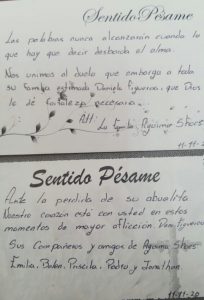 Sentido Pésame
Las palabras nunca alcanzarán cuando lo
que hay que decir desborda el alma.
Nos unimos al duelo que embarga a toda
su familia estimada Daniela Figueroa, que Dios
le dé fortaleza necesaria.
Att: La familia Aguirma Shoes
11-11-20
Sentido Pésame
Ante la perdida de su abuelita
Nuestro corazón está con usted en estos
momentos de mayor aflicción. Dani Figueroa
Sus Compañeros y amigos de Aguirma Shoes
Emilia, Belen, Priscila, Pedro y Jonathan
11-11-20